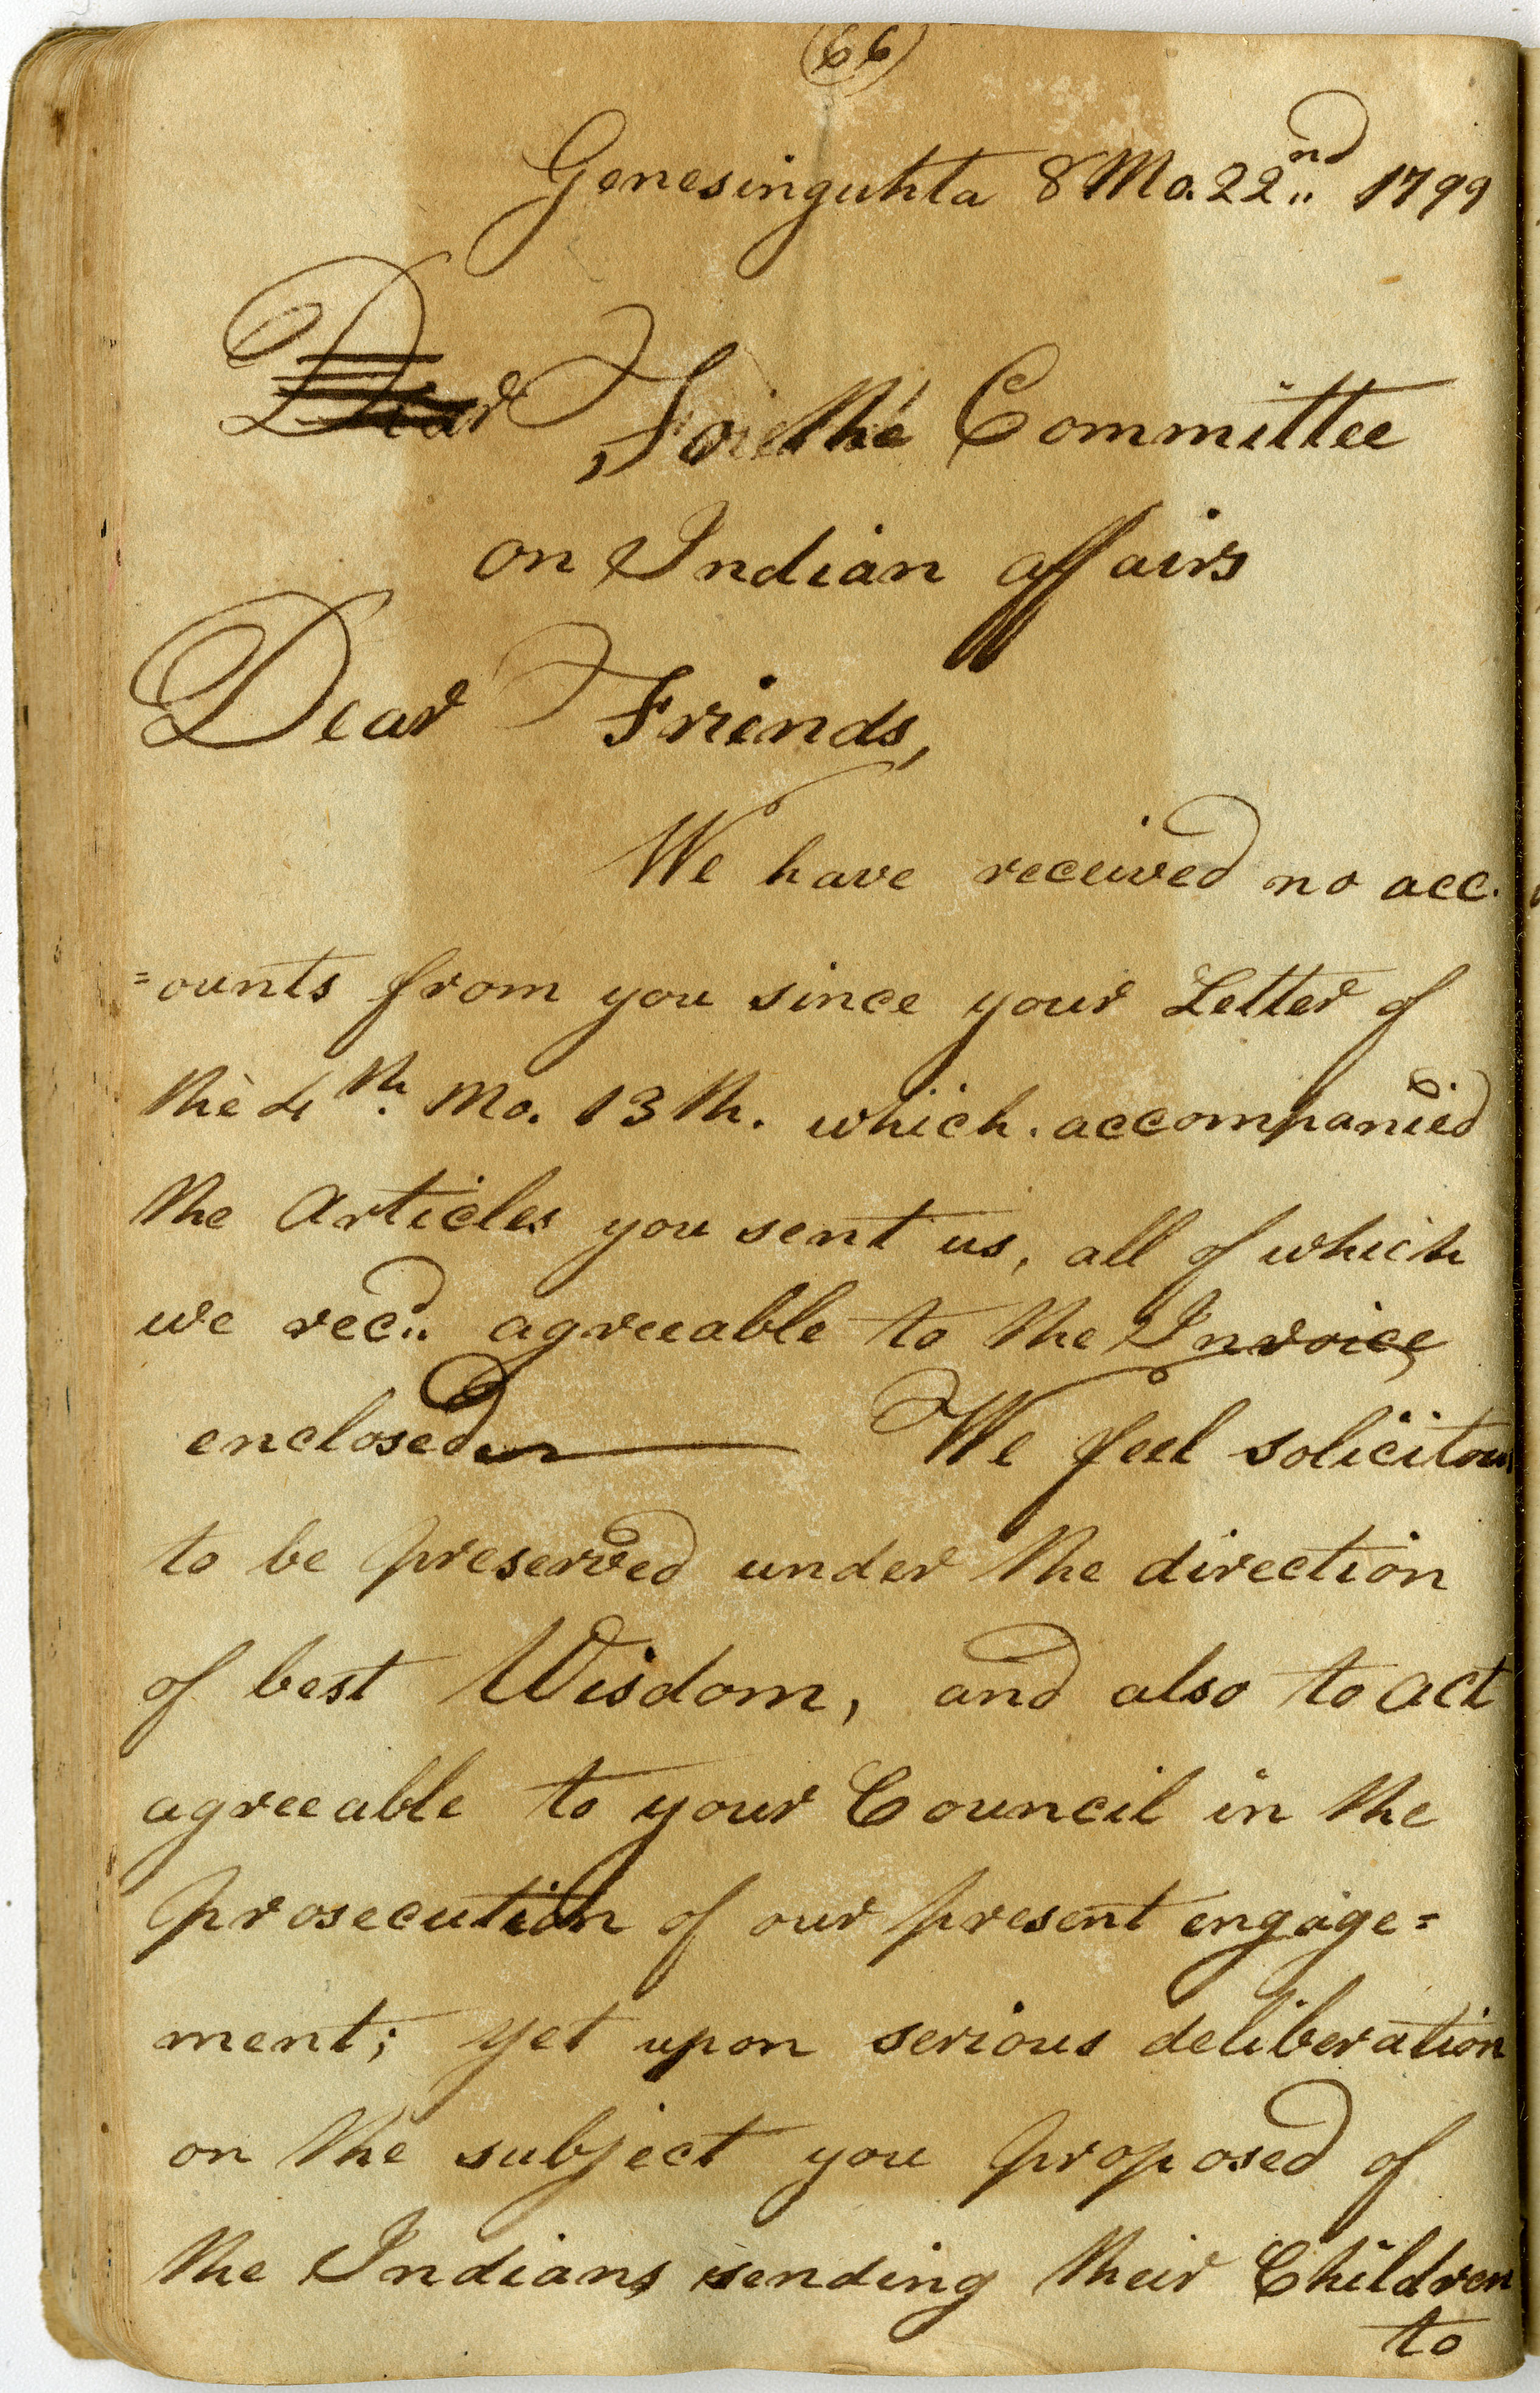 (66)
Genesinguhta 8 Mo. 22nd 1799
Dear For the Committee
on Indian affairs
Dear Friends,
We have received no acc.
=ounts from you since your Letter of
the 4th. Mo. 13th. which. accompanied
the Articles you sent us, all of which
we recd. agreeable to the Invoice
enclosed We feel solicitous
to be preserved under the direction
of best Wisdom, and also to act
agreeable to your Council in the
prosecution of our present engage=
ment; yet upon serious deliberation
on the subject you proposed of
the Indians sending their Children
to